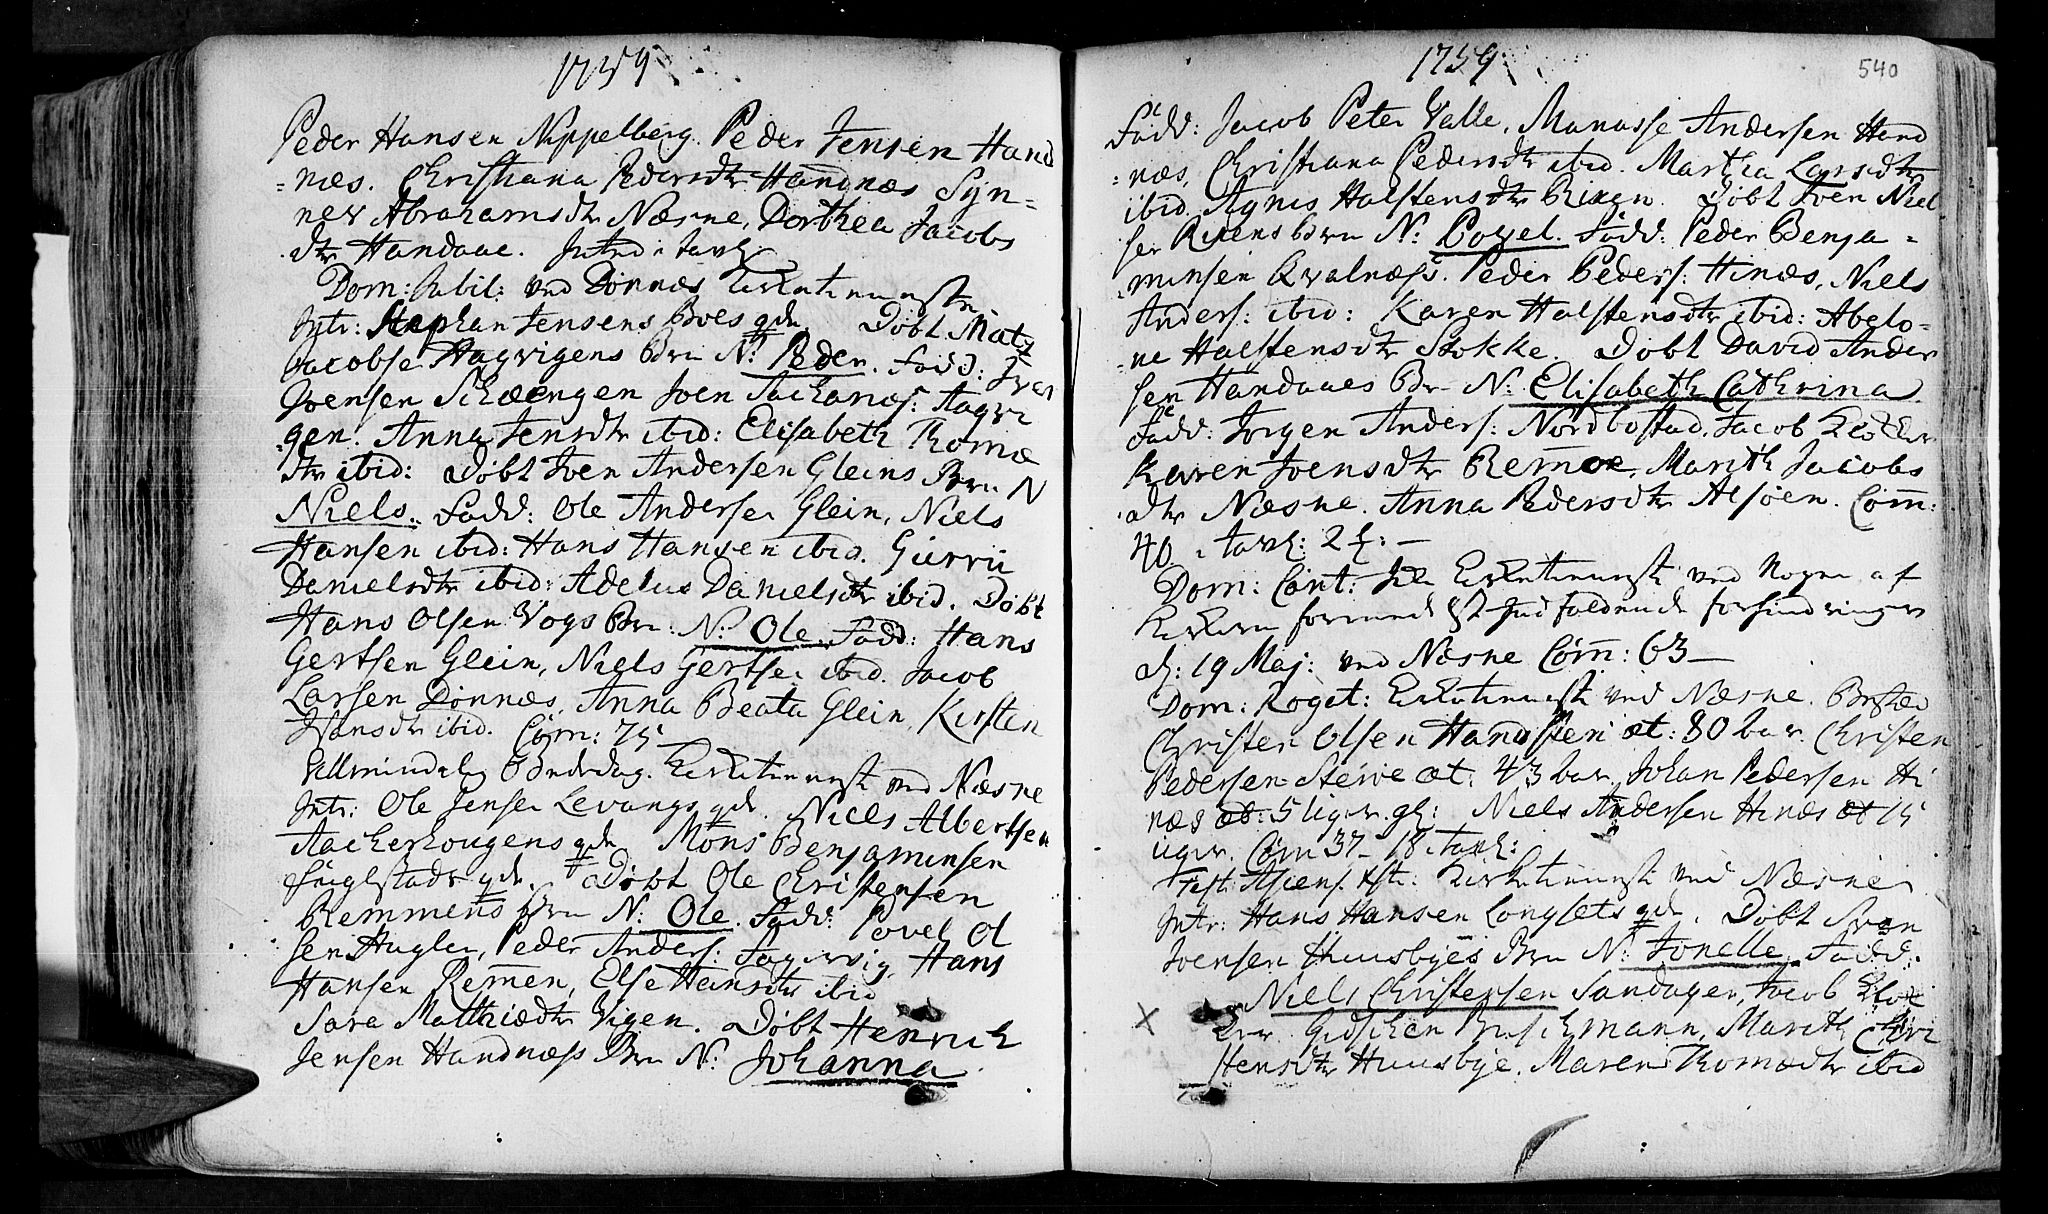 1759
Peder Hansen Nippelberg. Peder Jensen Hand
=næs. Christiana Pedersdtr Handnæs Syn=
nev Abrahamsdtr Næsne, Dorthea Jacobs
dtr Handaae.
Dom: Jubil: ved Dønnæs Kirketienneste
Intr: Stephan Jensens Boes qde. Døbt Matz
Jacobse Hagvigens Brn N: Peder. Fadd: Iver
Joensen Scheengen Joen Zachariæs: Aagvi
gen. Anna Jensdtr ibid: Elisabeth Thomæ
dtr ibid: Døbt Joen Andersen Gleins Brn N
Niels. Fadd: Ole Andersen Glein, Niels
Hansen ibid: Hans Hansen ibid. Gurru
Danielsdtr ibid: Adelus Danielsdtr ibid. Døbt
Hans Olsen Vogs Brn: N: Ole. Fadd: Hans
Gertsen Glein, Niels Gertsen ibid. Jacob
Larsen Dønnæs, Anna Beata Glein, Kirsten
Hansdtr ibid. Com: 75
Allmindelig Bededag. Kirketienneste ved Næsne
Intr: Ole Jensen Levangs qde. Niels Albertsen
Aackerhougens qde Mons Benjaminsen
Fuglstads qde. Døbt Ole Christensen
Remmens Brn N: Ole. Fadd: Povel Ol
sen Hugler, Peder Anders: Fagervig, Hans
Hansen Remen, Else Hansdtr ibid
Sara Matthiædtr Vigen. Døbt Henrich
Jensen Handnæss Brn N: Johanna.
1759
540
Fadd: Jacob Peter Valle, Manasse Andersen Hand
=næs, Christiana Pedersdtr ibid. Martha Larsdtr
ibid. Agnis Halstensdtr Risen. Døbt Joen Niel
sen Risens Brn N: Povel. Fadd: Peder Benja=
minsen Qvalnæss. Peder Peders: Hinæs, Niels
Anders: ibid: Karen Halstensdtr ibid: Abelo=
=ne Halstensdtr Stokke. Døbt David Ander
sen Handaaes Br N: Elisabeth Cathrina.
Fadd: Jørgen Anders: Nordbostad. Jacob Klocker
Karen Joensdtr Remoe, Marith Jacobs
dtr Næsne. Anna Pedersdtr Alsøen. Com:
40
Dom: Cant: Kirketienneste ved Nogen af
Kirken formedelst Indfaldende forhindringer
d: 19 Maj: ved Næsne Com: 63
Dom: Roget: Kirketienneste ved Næsne.
Christen Olsen Handsteen æt: 80 Christen
Pedersen Steive æt: 43 Johan Pedersen Hi
næs æt: 5 Uger gl: Niels Andersen Hinæs æt 15
uger. Com 37 18
Fest: Ascens. Xsti: Kirketienneste ved Næsne
Intr: Hans Hansen Longsets qde. Døbt Sven
Joensen Huusbyes Brn N: Jonelle. Fadd.
Niels Christensen Sandager, Jacob Kloc
ker Gidschen Buschmann, Marith Chri
stensdtr Huusbye. Maren Thomædtr ibid
X